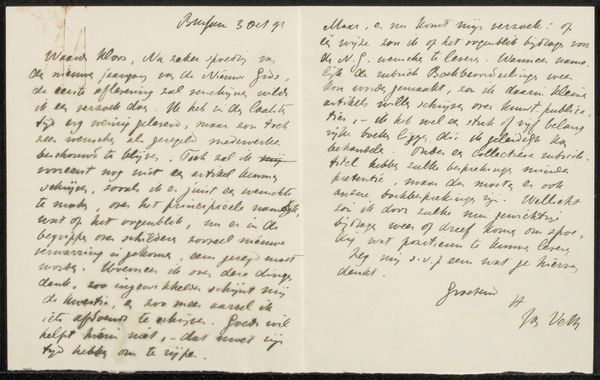 Bussum 3 Oct 91
Waarde Kloos, Nu zeker spoedig van
de nieuwe jaargang van de Nieuwe Gids,
de eerste aflevering zal verschijnen wilde
ik een verzoek doen. Ik heb in de laatste
tijd erg weinig geleverd, maar zou toch
zeer wenschen als geregeld medewerker
beschouwd te blijven. Toch zal ik
vooreerst nog niet een artikel kunnen
schrijven, zooals ik er juist een wenschte
te maken, over het principieele namelijk,
wat op het oogenblik, nu er in de
begrippen over schilderen zooveel nieuwe
verwarring is gekomen, eens gezegd moet
worden. Wanneer ik over deze dingen
denk, zoo ingewikkelder schijnt mij
de kwestie, en zoo meer aarzel ik
iets afdoends te schrijven. Goede wil
helpt hierin niet, – dat moet zijn
tijd hebben om te rijpen.
Maar, en nu komt mijn verzoek: op
één wijze zou ik op het oogenblik bijdragen voor
de N.G. wenschen te leveren. Wanneer name-
lijk de rubriek Boekbeoordeelingen weer
kon worden gemaakt, zou ik daarin kleine
artikels willen schrijven over kunst publica-
ties, – ik heb wel een stuk of vijf belang
rijke boeken liggen die ik geleidelijk kan
behandelen. Onder een collectieven rubriek-
titel hebben zulke besprekingen minder
pretentie, maar dan moeten er ook
andere boekbesprekingen zijn. Wellicht
zou ik door zulke min gewichtige
bijdragen weer op dreef komen om spoe-
dig wat positievers te kunnen leveren.
Zeg mij s.v.p. eens wat je hiervan
denkt.
Groetend
Jan Veth